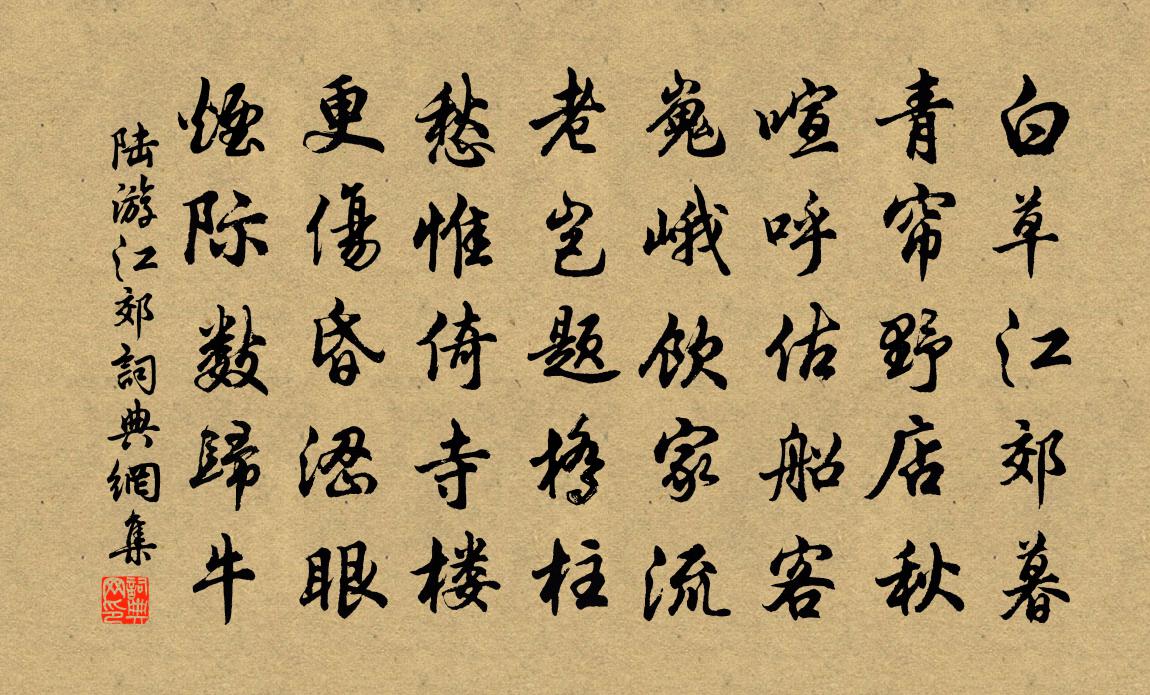 白草江郊暮
青帘野店秋
喧呼估船客
嵬峨饮家流
老岂题橋柱
愁惟倚寺楼
更傷昏涩眼
煙际数歸牛
陆游江郊詞典網集
詞典网印